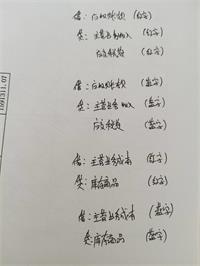 借：应收账款 (红字)
贷：主营业务收入 (红字)
应交税费 (红字)
借：应收账款 (蓝字)
贷：主营业务收入 (蓝字)
应交税费 (蓝字)
借：主营业务成本 (红字)
贷：库存商品 (红字)
借：主营业务成本 (蓝字)
贷：库存商品 (蓝字)